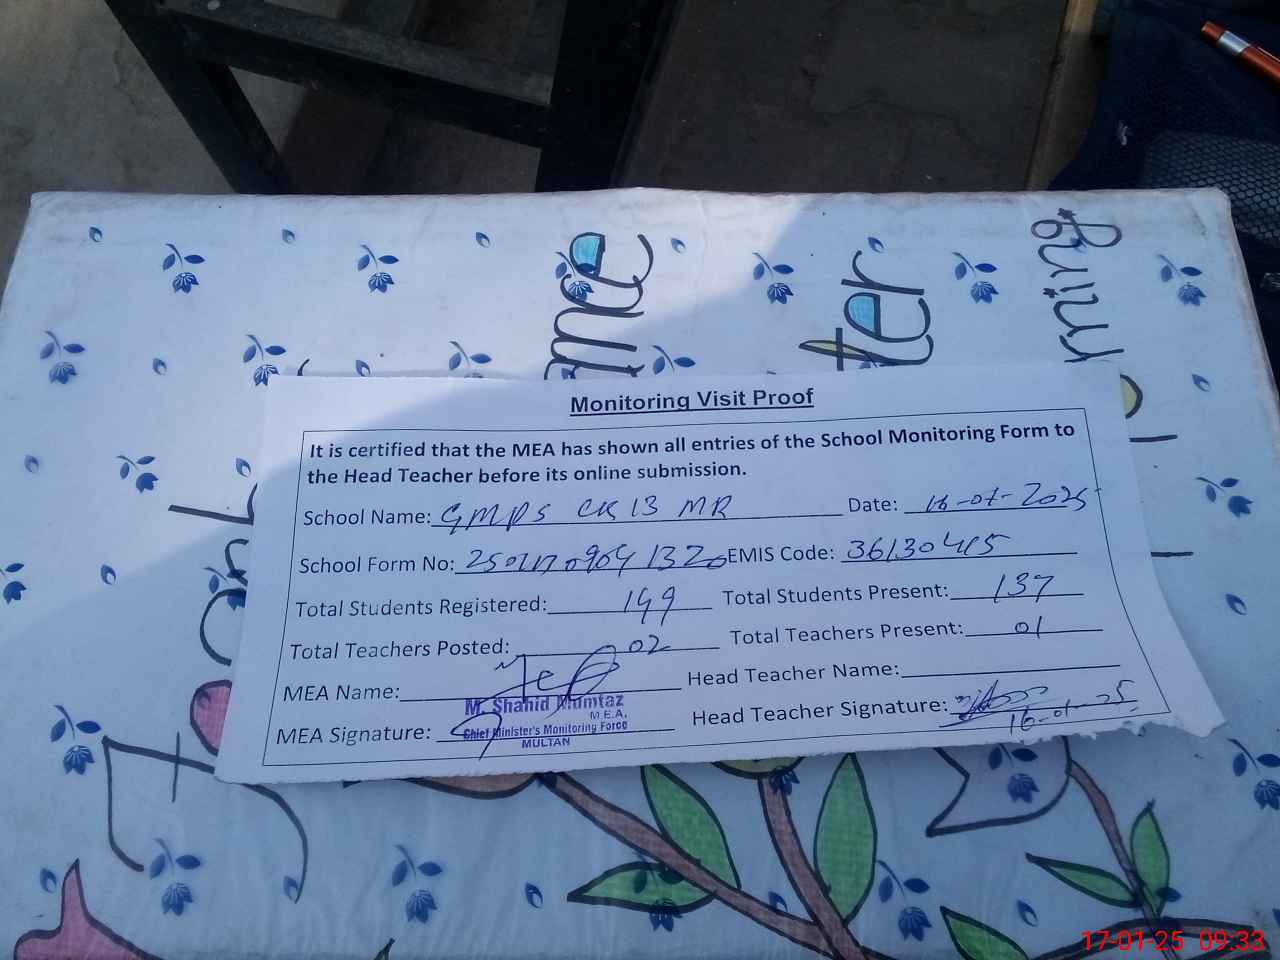 Monitoring Visit Proof
It is certified that the MEA has shown all entries of the School Monitoring Form to
the Head Teacher before its online submission.
School Name: GMPS CK 13 MR Date: 16-01-2025
School Form No: EMIS Code: 36130415
Total Students Registered: 149 Total Students Present: 137
Total Teachers Posted: 02 Total Teachers Present: 01
MEA Name: Head Teacher Name:
M. Shahid Mumtaz
M.E.A.
MEA Signature: Head Teacher Signature:
16-01-25
Chief Minister's Monitoring Force
MULTAN
17-01-25 09:33